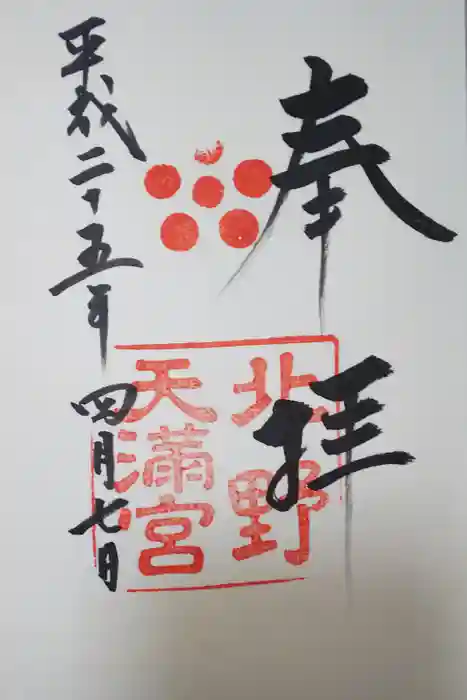 奉拝
北野
天満宮
平成二十五年
四月七日